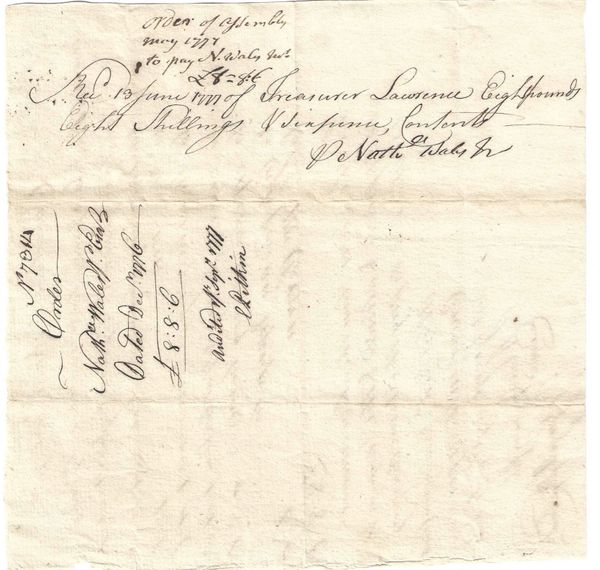 Order of Assembly
may 1777
to pay N. Wales Jnr.
£8=8:6
Rec'd. 13 June 1777 of Treasurer Lawrence Eight pounds
Eight Shillings & Sixpence, Contents
Nath'el Wales Jr
No 7314
Order
Nath'l Wales Jr. Esqr
Dated Dec'r. 1776
£8:8:6
Audited Sept. 1777
E Pitkin